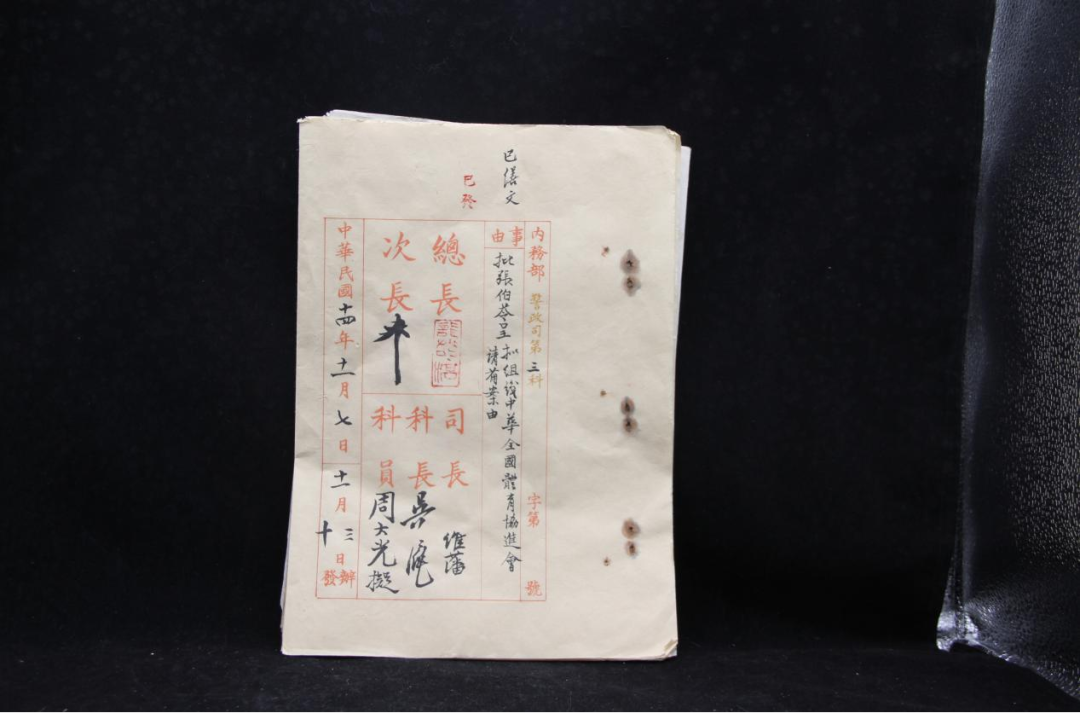 已繕文
已發
內務部 警政司第三科 字第 號
事由
批張伯苓呈擬組織中華全國體育協進會
請備案由
總長
次長
司長 維藩
科長 吳
科員 周大光擬
中華民國十四年十一月七日
十一月十三日
辦發